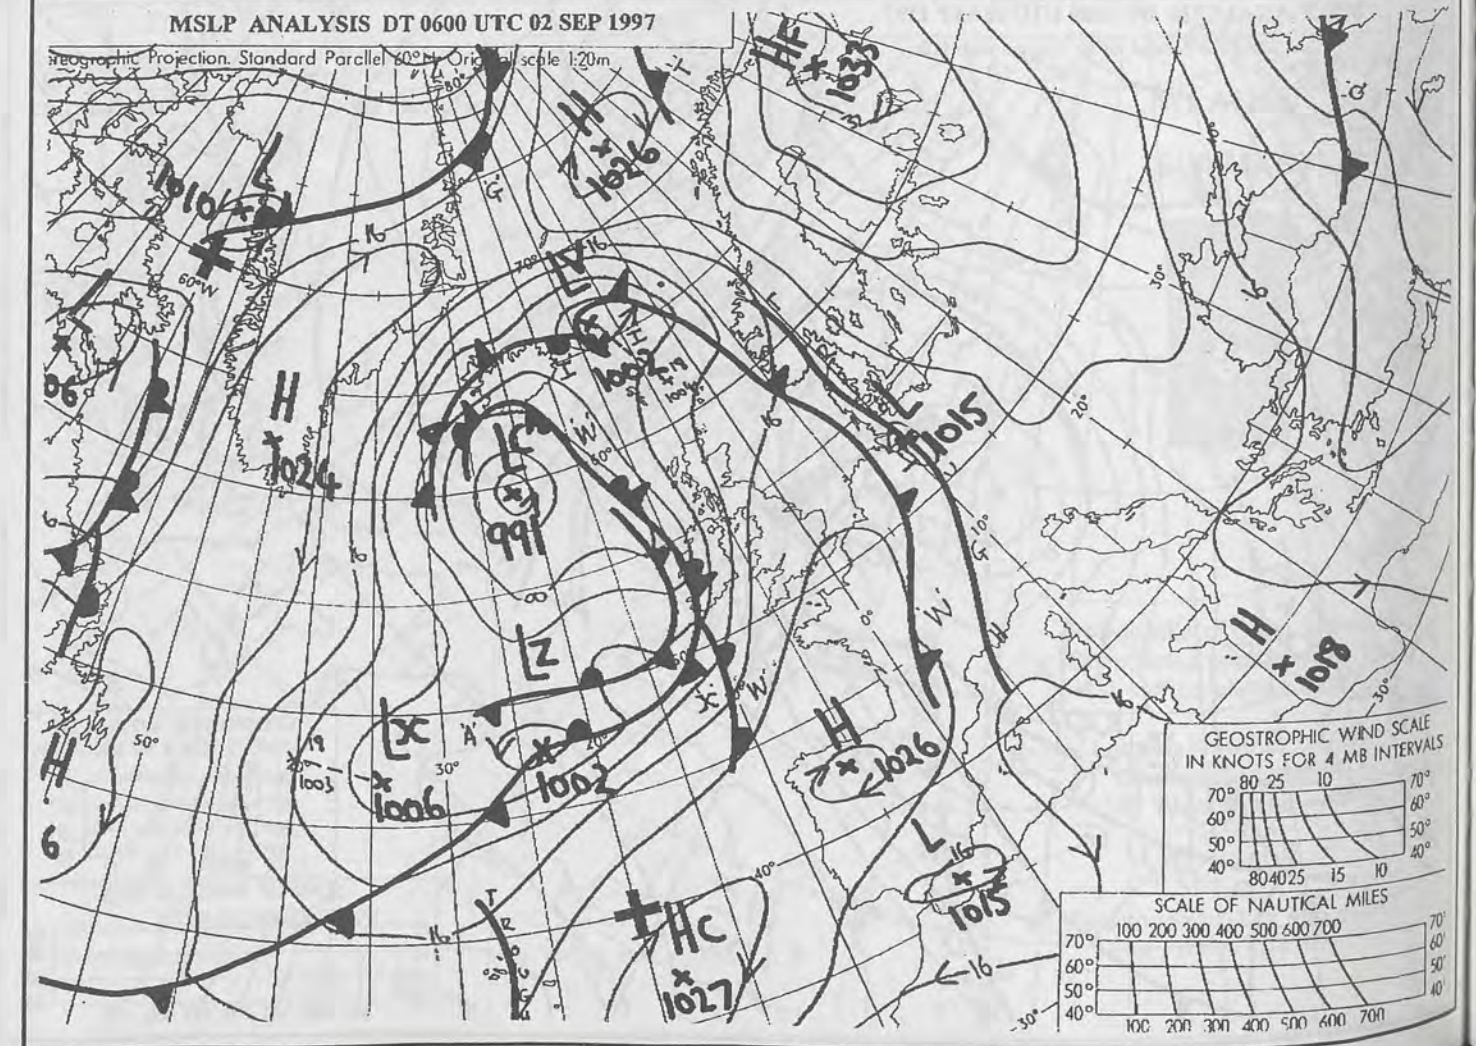 MSLP ANALYSIS DT 0600 UTC 02 SEP 1997
reographic Projection. Standard Parallel 60° N Original scale 1:20m
80°
HF
1033
H
1026
L
1010
G
16
60°W
70°
LV
16
1002
H
1024
LC
991
W
60°
L
1015
30°
20°
10°
G
0°
W
H
1018
30°
8
LZ
50°
LX
'A'
'X'
W
19
1003
1006
30°
20°
1002
H
1026
50°
H
6
L
16
1015
40°
T
R
O
U
G
H
16
HC
1027
16
30°
GEOSTROPHIC WIND SCALE
IN KNOTS FOR 4 MB INTERVALS
80 25 10
70° 70°
60° 60°
50° 50°
40° 40°
80 40 25 15 10
SCALE OF NAUTICAL MILES
100 200 300 400 500 600 700
70° 70°
60° 60°
50° 50°
40° 40°
100 200 300 400 500 600 700